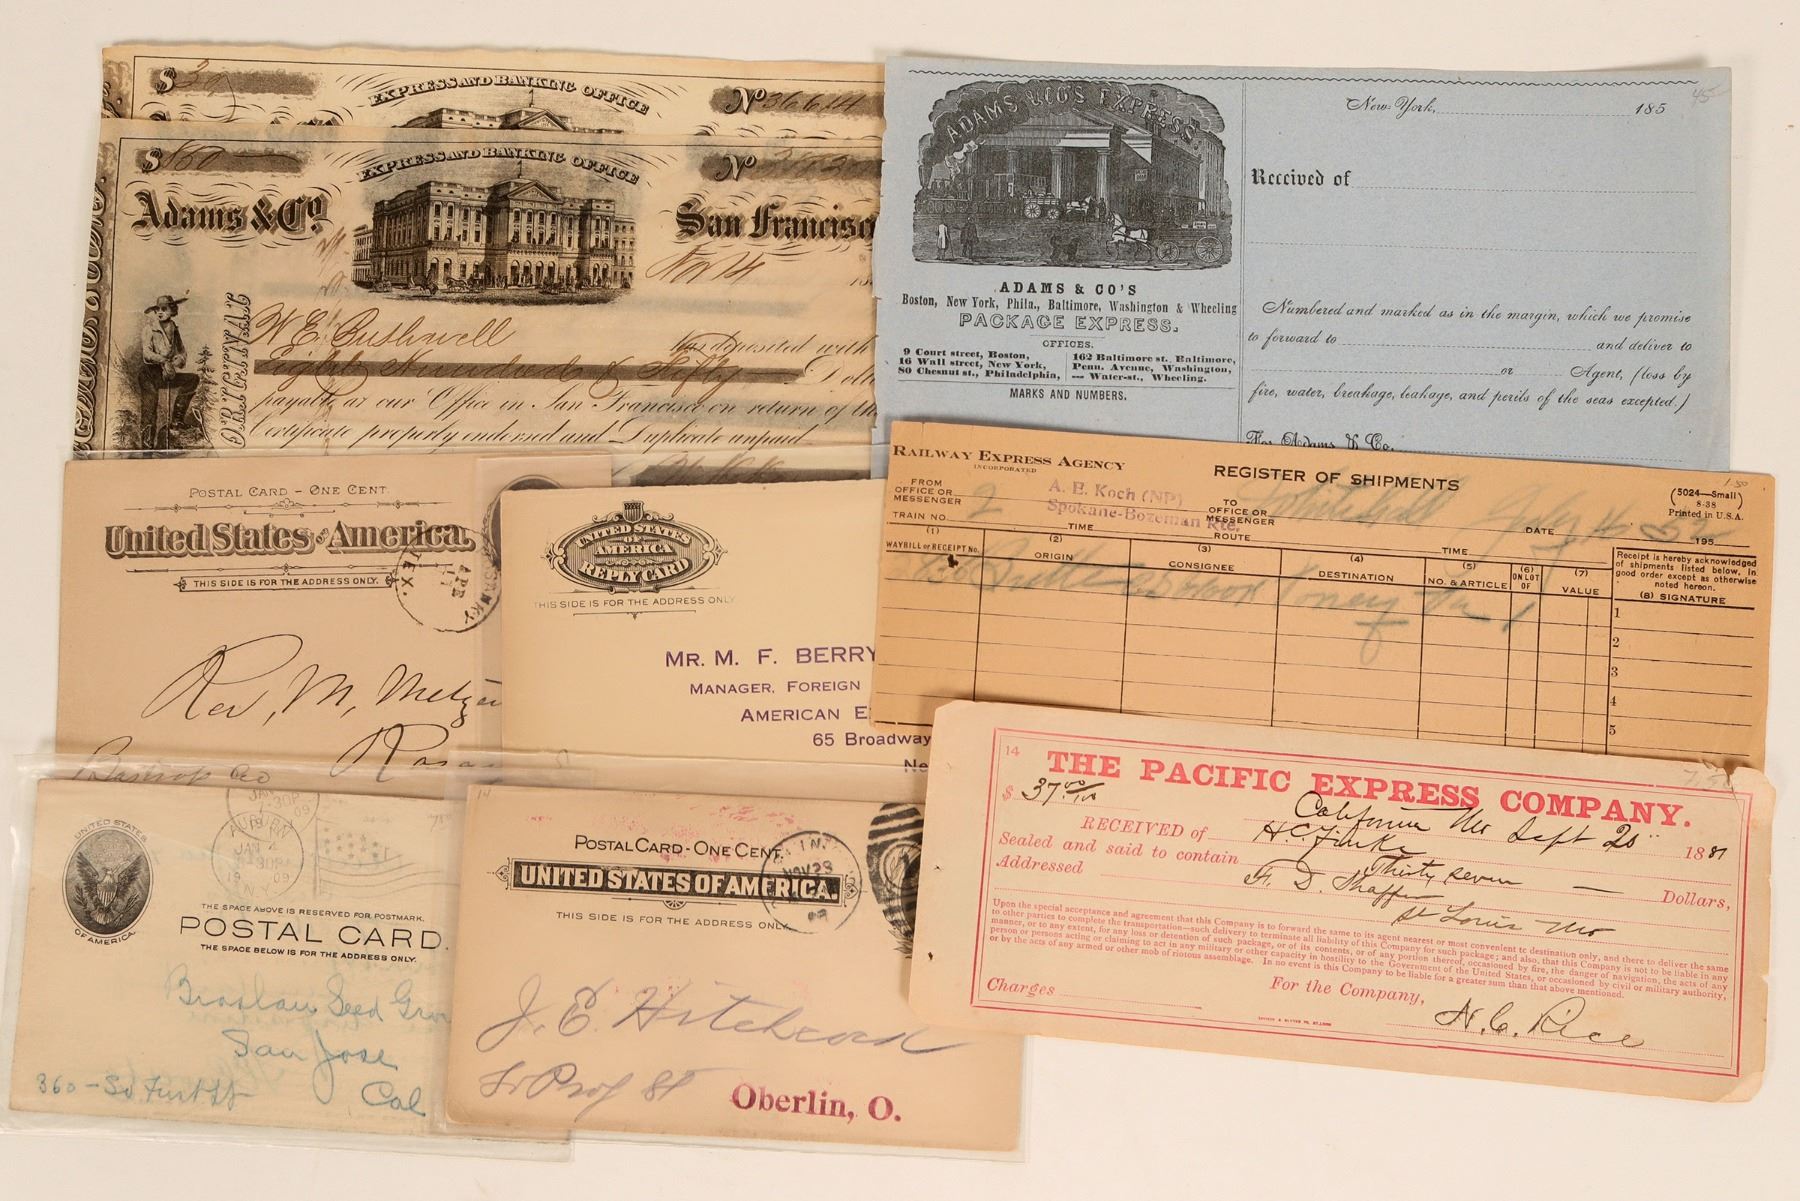 $ 30
EXPRESS AND BANKING OFFICE
No 36614
$ 860
EXPRESS AND BANKING OFFICE
No
Adams & Co.
San Francisco
Nov 14
W. E. Bushwell
has deposited with
Eight Hundred & Fifty
Dolla
payable at our Office in San Francisco on return of th
Certificate properly endorsed and Duplicate unpaid
ADAMS & CO'S EXPRESS
ADAMS & CO'S
Boston, New York, Phila., Baltimore, Washington & Wheeling
PACKAGE EXPRESS.
OFFICES.
9 Court street, Boston,
16 Wall street, New York,
80 Chesnut st., Philadelphia,
162 Baltimore st. Baltimore,
Penn. Avenue, Washington,
— Water-st., Wheeling.
MARKS AND NUMBERS.
New-York, 185
45
Received of
Numbered and marked as in the margin, which we promise
to forward to and deliver to
or Agent, (loss by
fire, water, breakage, leakage, and perils of the seas excepted.)
For Adams & Co.
POSTAL CARD - ONE CENT.
United States of America.
THIS SIDE IS FOR THE ADDRESS ONLY.
TEX.
Rev, M, Metzge
Bastrop Co
UNITED STATES
OF
AMERICA
REPLY CARD
THIS SIDE IS FOR THE ADDRESS ONLY
MR. M. F. BERRY
MANAGER, FOREIGN
AMERICAN E
65 Broadway
Ne
RAILWAY EXPRESS AGENCY
INCORPORATED
REGISTER OF SHIPMENTS
1.50
(5024—Small)
8-38
Printed in U.S.A.
FROM
OFFICE OR
MESSENGER
A. E. Koch (NP)
Spokane-Bozeman Rte.
TO
OFFICE OR
MESSENGER
Whitehall
TRAIN NO. 2
TIME
ROUTE
TIME
DATE
195
(1)
WAYBILL or RECEIPT No.
(2)
ORIGIN
(3)
CONSIGNEE
(4)
DESTINATION
(5)
NO. & ARTICLE
(6)
ON LOT
OF
(7)
VALUE
Receipt is hereby acknowledged
of shipments listed below, in
good order except as otherwise
noted hereon.
(8) SIGNATURE
1
2
3
4
5
14
THE PACIFIC EXPRESS COMPANY.
7.50
$ 37 00/100
California Mo Sept 20 1881
RECEIVED of H. C. Finke
Sealed and said to contain Thirty seven — Dollars,
Addressed F. D. Shaffer
St Louis Mo
Upon the special acceptance and agreement that this Company is to forward the same to its agent nearest or most convenient to destination only, and there to deliver the same
to other parties to complete the transportation—such delivery to terminate all liability of this Company for such package; and also, that this Company is not to be liable in any
manner, or to any extent, for any loss or detention of such package, or of its contents, or of any portion thereof, occasioned by fire, the danger of navigation, the acts of any
person or persons acting or claiming to act in any military or other capacity in hostility to the Government of the United States, or occasioned by civil or military authority,
or by the acts of any armed or other mob of riotous assemblage. In no event is this Company to be liable for a greater sum than that above mentioned.
Charges
For the Company,
H. C. Rice
UNITED STATES
OF AMERICA
AUBURN
JAN 4
7-30P
1909
N.Y.
THE SPACE ABOVE IS RESERVED FOR POSTMARK.
POSTAL CARD.
THE SPACE BELOW IS FOR THE ADDRESS ONLY.
Braslan Seed Grow
San Jose
360 - So First St
Cal
14
POSTAL CARD - ONE CENT.
UNITED STATES OF AMERICA.
THIS SIDE IS FOR THE ADDRESS ONLY.
NOV 23
J. E. Hitchcock
So Prof St
Oberlin, O.